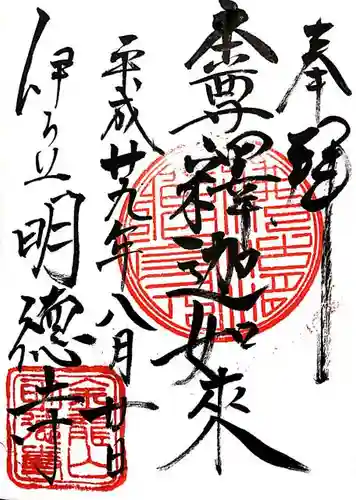 奉拝
本尊釋迦如来
平成廿九年八月廿日
伊る立明徳寺